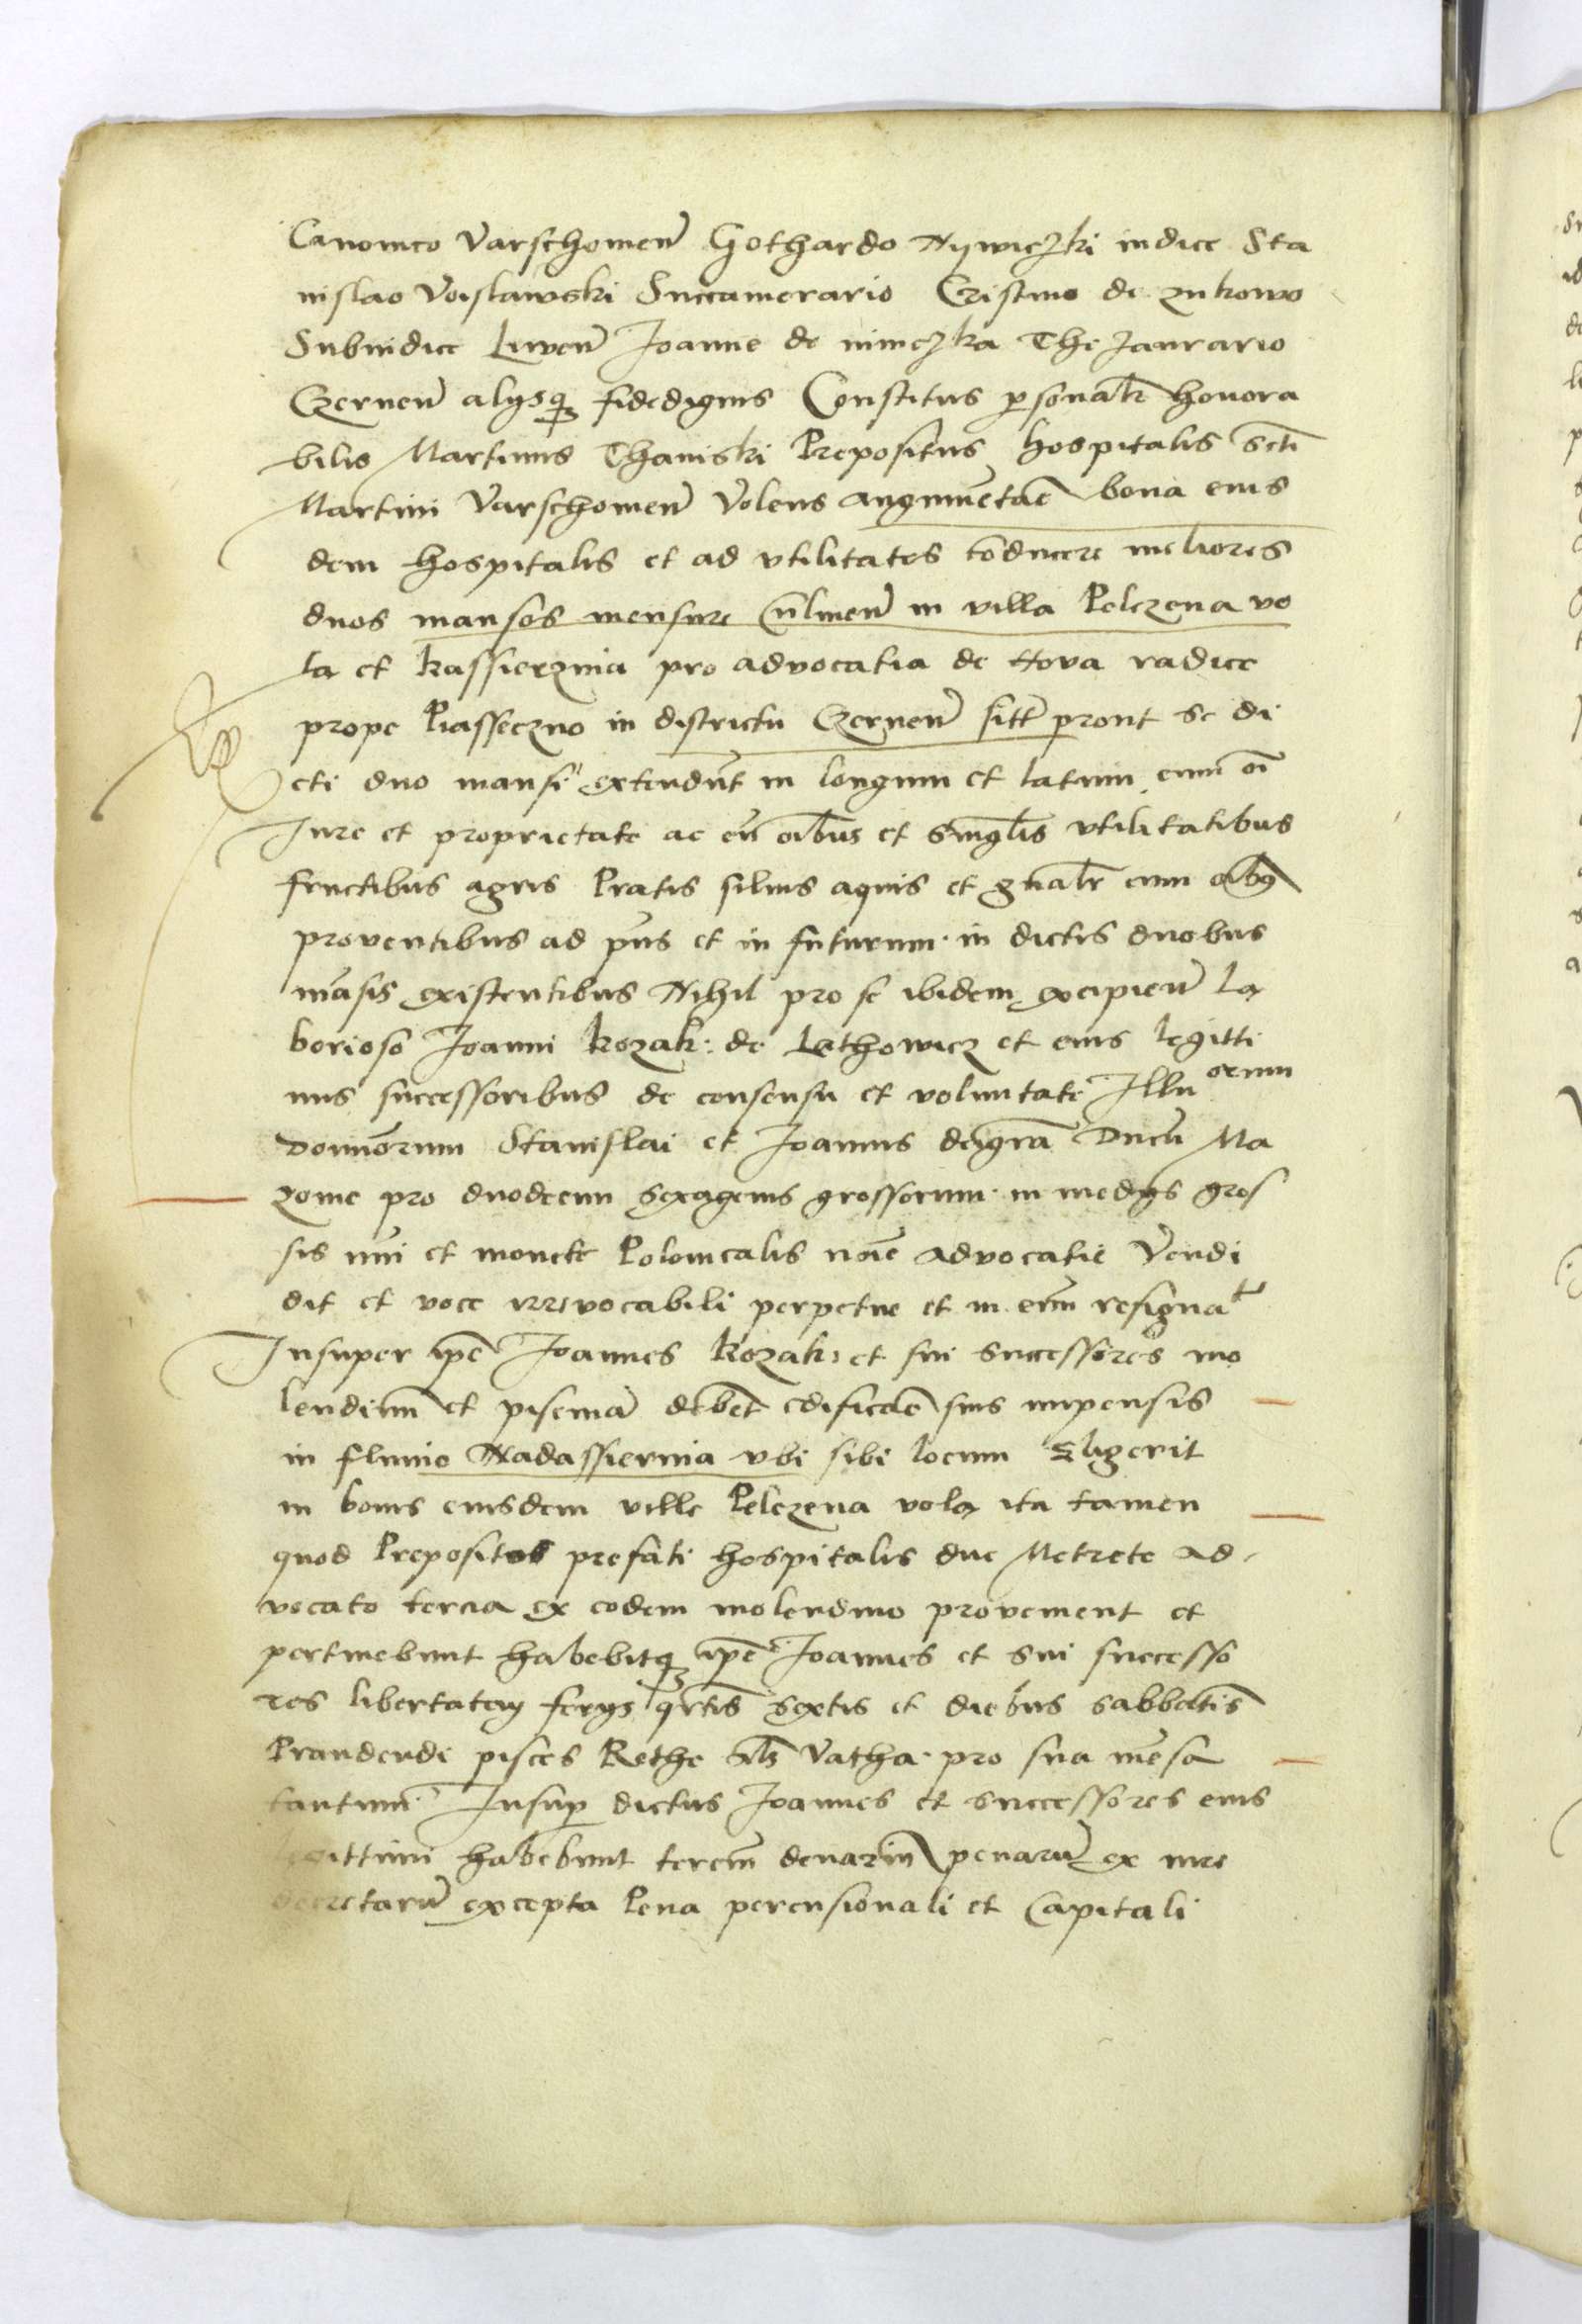 Canonico Varschomen̄ Gothardo Nywiczki iudice Sta
nislao Voislawski Succamerario Cristino de zukowo
Subiudice Liwen̄ Joanne de nimczka Thezaurario
Czernen̄ alysq̨ fidedignis Constitus ꝑsonalr̄ honora
bilis Martinus Thaniski Prepositus hospitalis scti̅
Martini Varschomen̄ Volens augmētar̄e bona eius
dem hospitalis et ad vtilitates cōducere meliores
duos mansos mensure Culmen̄ in villa Pelczena vo
la et kassierznia pro advocatia de Nova radice
prope Piasseczno in districtu Czernen̄ sitt̄ prout se di
cti duo mansi extendūt in longum et latum cum oī
Jure et proprietate ac cū oībus et singlīs vtilitatibus
fructibus agris Pratis siluis aquis et gnalr̄ cum oībꝫ
proventibus ad pn̄s et in futurum in dictis duobus
māsis existentibus Nihil pro se ibidem excipien̄ la
borioso Joanni kozak: de Lathowicz et eius legitti
mis successoribus de consensu et voluntate Illu orum
dominorum Stanislai et Joannis dei gra̅ Ducu̅ Ma
zouie pro duodecim sexagenis grossorum in medys gros
sis nūi et monete Polonicalis noīe advocatie Vendi
dit et voce irrevocabili perpetue et in eūm resignat
Insuper ip̄e Joannes kozak: et sui successores mo
lendinū et piscinā debēt edificar̄e suis impensis
in fluuio Nadassiernia vbi sibi locum Eligerit
in bonis eiusdem ville Pelczena vola ita tamen
quod Prepositos prefati hospitalis due Metrete ad
vocato tercia ex eodem molendino provenient et
pertinebunt habebitq̨ ip̄e Joannes et sui successo
res libertatem ferys qr̄tis sextis et diebus sabbatīs
Prandendi pisces Rethe al̄s Vatha pro sua mēsa
tantum Insuꝑ dictus Joannes et successores eius
legittimi habebunt terciū denariū penarū ex iure
decretarū excepta Pena percusionali et Capitali